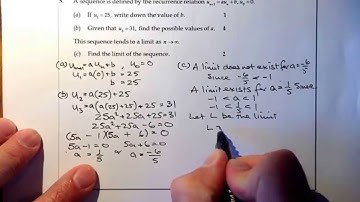 5. A sequence is defined by the recurrence relation uₙ₊₁ = auₙ + b, u₀ = 0.
(a) If u₁ = 25, write down the value of b. 1
(b) Given that u₃ = 31, find the possible values of a. 4
This sequence tends to a limit as n → ∞.
2
(a) Uₙ₊₁ = aUₙ + b, U₀ = 0
U₁ = a(0) + b = 25
b = 25
(b) U₂ = a(25) + 25
U₃ = a(a(25) + 25) + 25 = 31
25a² + 25a + 25 = 31
25a² + 25a - 6 = 0
(5a - 1)(5a + 6) = 0
5a - 1 = 0 5a + 6 = 0
a = 1/5 or a = -6/5
(c) A limit does not exist for a = -6/5
since -6/5 < -1
A limit exists for a = 1/5 since
-1 < a < 1
-1 < 1/5 < 1
Let L be the limit
L =